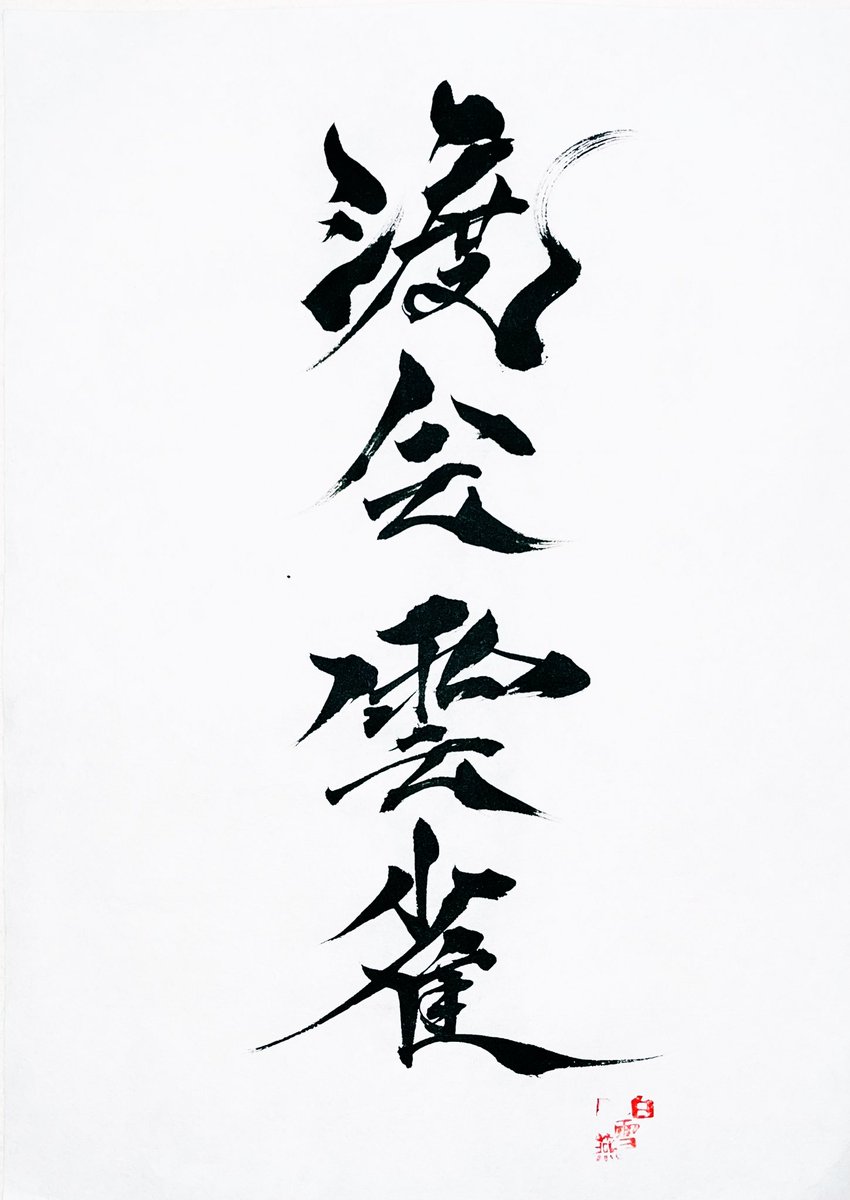 渡会雲雀
白雪
燕